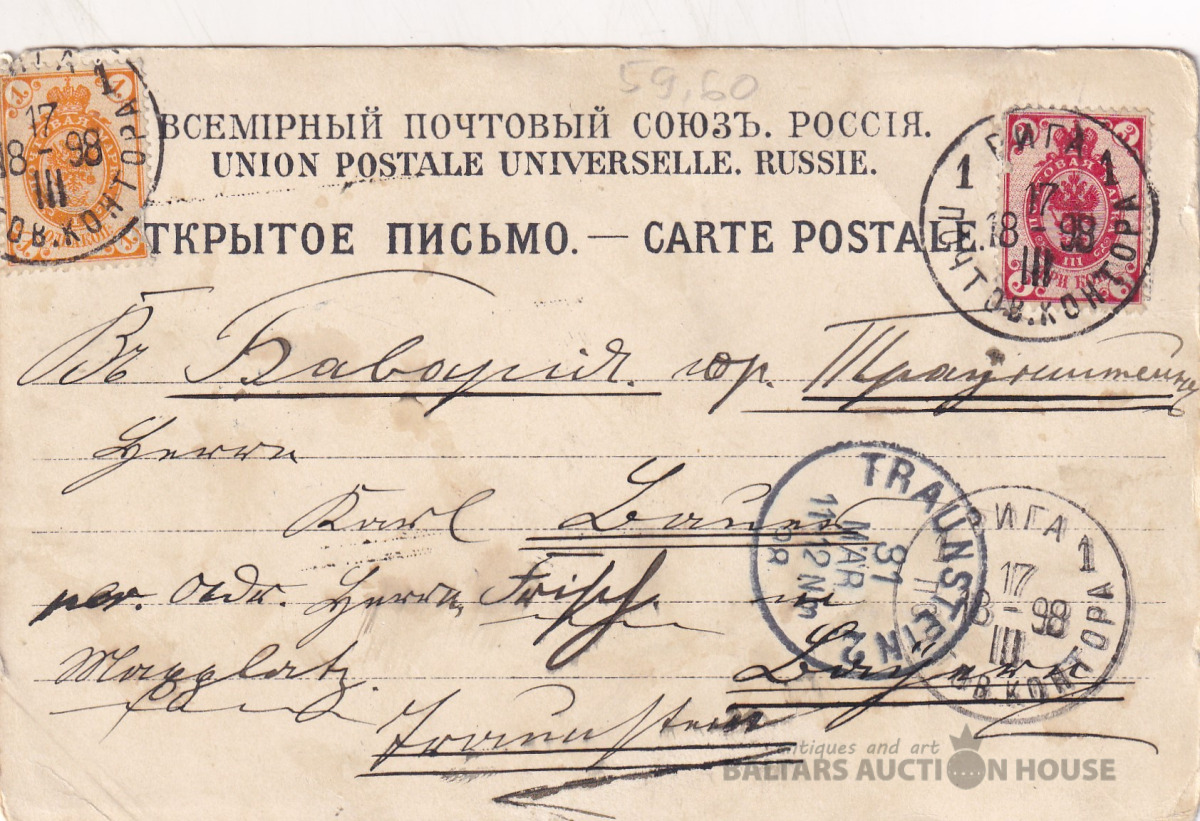 59,60
ВСЕМІРНЫЙ ПОЧТОВЫЙ СОЮЗЪ. РОССІЯ.
UNION POSTALE UNIVERSELLE. RUSSIE.
ТКРЫТОЕ ПИСЬМО. — CARTE POSTALE.
РИГА 1
17
18 - 98
III
ПОЧТОВ. КОНТОРА
РИГА 1
1 17
18 - 98
III
ПОЧТОВ. КОНТОРА
Въ Баварія. гор. Траунштейнъ
Herrn
Karl Bauer
per. Adr. Herrn Frisch in
Bayern
Traunstein
TRAUNSTEIN 2
31
MÄR
11-12 Nm
98
РИГА 1
17
18 - 98
III
ПОЧТОВ. КОНТОРА
antiques and art
BALTARS AUCTION HOUSE